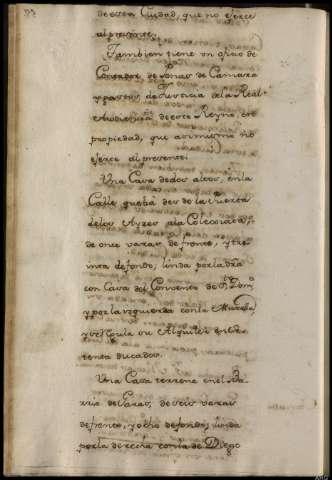 de esta Ciudad, que no exerce
al presente.
Tambien tiene un ofizio de
Contador de Penas de Camara
y gastos de Justicia de la Real
Audiencia de este Reyno, en
propiedad, que asimismo no
exerce al presente.
Una Casa de dos altos, en la
Calle que ba des de la Puerta
de los Ayres ala Colexiata,
de once varas de frente, y tre
inta de fondo, linda por la dra
con Casa del Convento de Sto Domo
y por la izquierda con la Muralla,
y se Regula su Alquiler en se
tenta ducados.
Una Casa terrena en el Ba
rrio de Garas, de seis varas
de frente, y ocho de fondo; linda
por la derecha con la de Diego